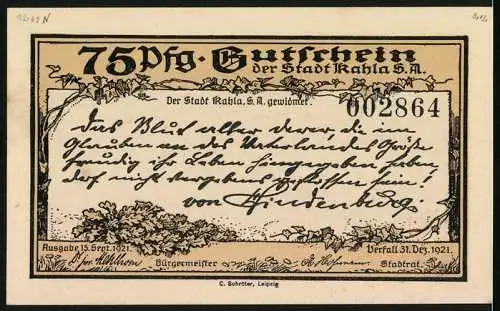 75 Pfg. Gutschein
der Stadt Kahla S.A.
Der Stadt Kahla, S.A. gewidmet.
002864
Das Blut aller derer, die im
Glauben an des Vaterlandes Größe
freudig ihr Leben hingegeben haben,
darf nicht vergebens geflossen sein!
von Hindenburg.
Ausgabe 15. Sept. 1921.
Verfall 31. Dez. 1921.
Bürgermeister
Stadtrat.
C. Schröter, Leipzig